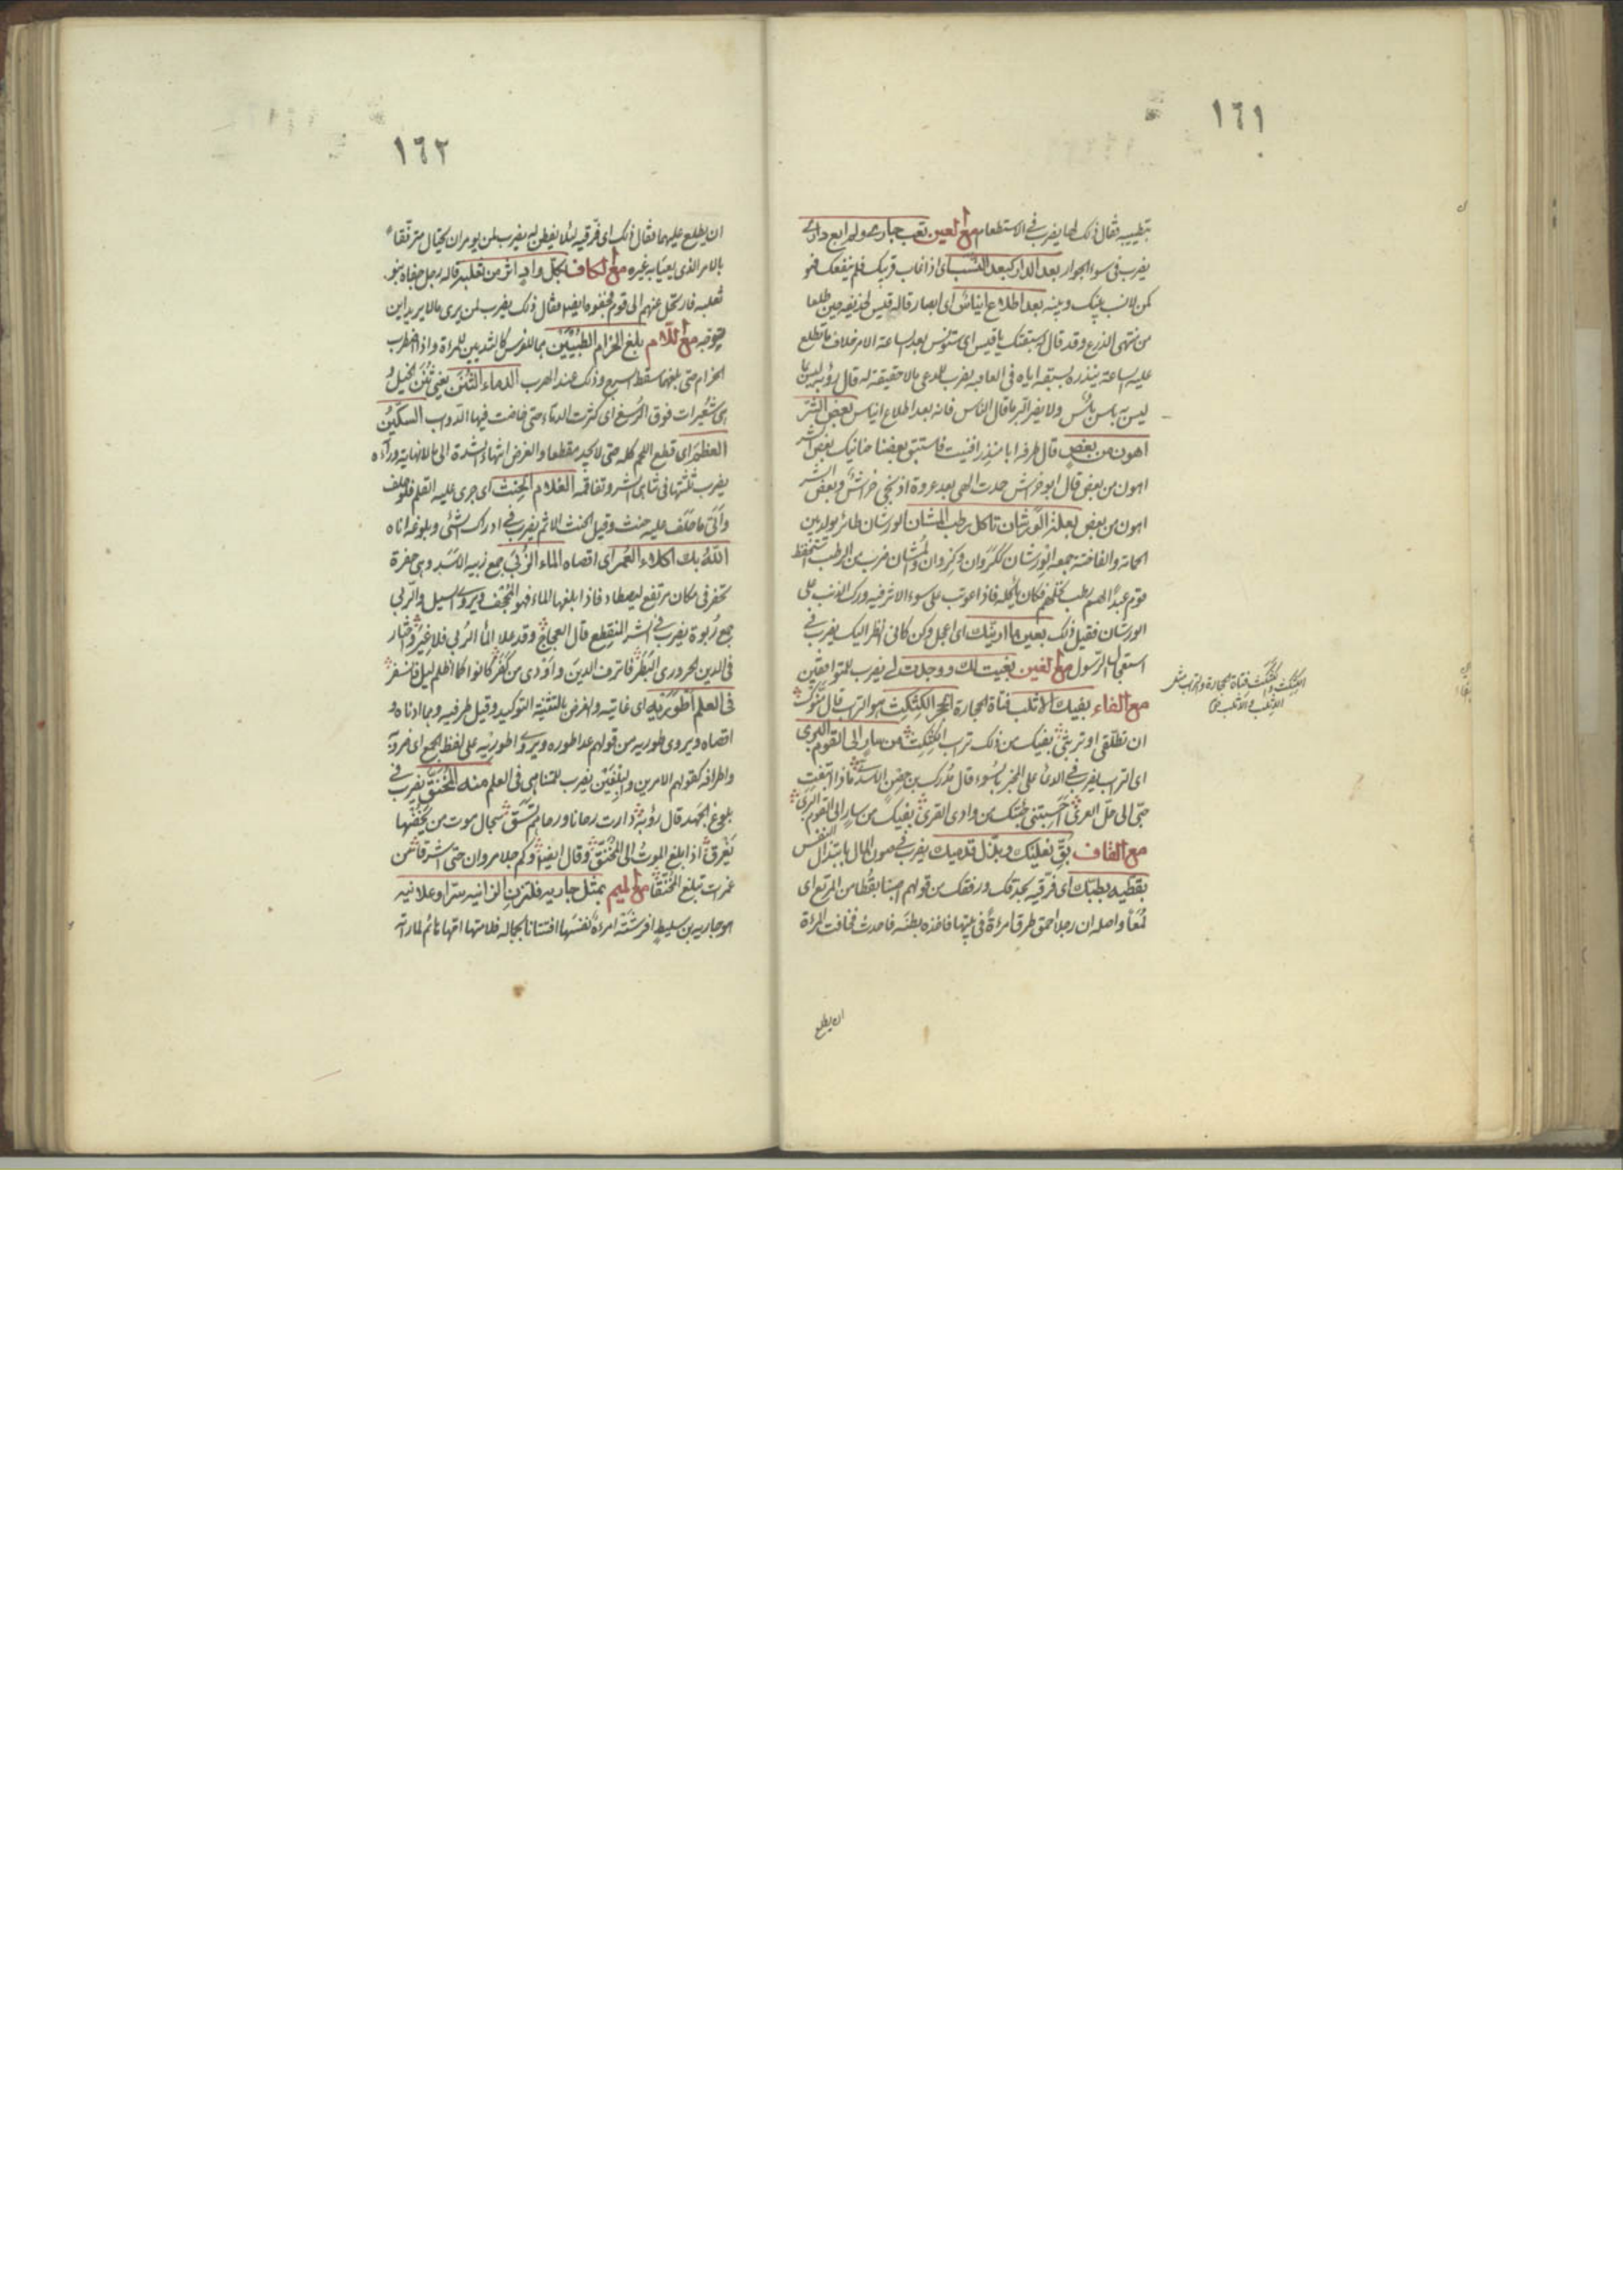 ١٦١
بتطييبه فقال ذلك لها يضرب في الاستطعام مع العين بعت جاري ولم ابع داري
يضرب في سوء الجوار بعد الدار كبعد النسب اى اذا غاب قريبك فلم ينفعك فهو
كمن لا نسب بينك وبينه بعد اطلاع ايناس اى ابصار قاله قيس لحذيفة حين طلعا
من منتهى الذرع وقد قال سبقتك يا قيس اى ستونس بعد ساعة الامر خلاف ما تطلع
عليه ساعة ينذره بسبقه اياه في العاقبة يضرب للمدعى بالا حقيقة له قال رؤبة ليس بما
ليس به باس باس ولا يضر البر ما قال الناس فانه بعد اطلاع ايناس بعض الشر
اهون من بعض قال طرفة ابا منذر افنيت فاستبق بعضنا حنانيك بعض الشر
اهون من بعض قال ابو خراش حمدت الهي بعد عروة اذ نجى خراش وبعض الشر
اهون من بعض بعلة الورشان تاكل رطب المشان الورشان طائر يولد بين
الحمامة والفاختة جمعه الورشان ككروان وكروان والمشان ضرب من الرطب استحفظ
قوم عبدا لهم رطب نخلهم فكان ياكله فاذا عوتب على سوء الاثر فيه ورك الذنب على
الورشان فقيل ذلك بعين ما ارينك اى اعجل وكن كانى انظر اليك يضرب في
استعجال الرسول مع الغين بغيت لك ووجدت لي يضرب للتوافقين
مع الفاء بفيك الاثلب فتاة الحجارة الحجر الكثكث هو التراب قال
ان تطلقى او تربثى بفيك من ذلك تراب الكثكث من سار الى القوم البرى
اى التراب يضرب في الدعاء على المخبر بالسوء قال مدرك بن حصن الاسدى ماذا ابتغت
حبى الى حل العرى احسبتنى جئتك من وادى القرى بفيك من سار الى القوم البرى
مع القاف بق نعليك وبذل قدميك يضرب في صون المال بابتذال النفس
بقطيه بطبك اى فرقيه بحذقك ورفقك من قولهم اصبنا بقطا من المرتع اى
لمعا واصله ان رجلا احمق طرق امرءة في بيتها فاخذه بطنه فاحدث فخافت المرءة
ان يطلع
الكثكث والكثكث فتاة الحجارة والتراب مثل
الاثلب والاثلب
١٦٢
ان يطلع عليهما فقال ذلك اى فرقيه لئلا يفطن له يضرب لمن يومر ان يحتال مترفقا
بالامر الذى يعيا به غيره مع الكاف بكل واد اثر من ثعلبة قاله رجل جفاه بنو
ثعلبة فارتحل عنهم الى قوم فجفوه ايضا فقال ذلك يضرب لمن يرى ما لا يريد اين
توجه مع اللام بلغ الحزام الطبيين هما للفرس كالثديين للمراة واذا اضطرب
الحزام حتى بلغهما سقط السرج وذلك عند الهرب الدماء الثنن يعنى ثنن الخيل و
هى شعيرات فوق الرسغ اى كثرت الدماء حتى خاضت فيها الدواب السكين
العظم اى قطع اللحم كله حتى لا يجد مقطعا والغرض انتهاء الشدة الى ما لا نهاية وراءه
يضرب ثلثتها في تناهى الشر وتفاقمه الغلام الحنث اى جرى عليه القلم فلو حلف
واتى ما حلف عليه حنث وقيل الحنث الاثم يضرب في ادراك الشئ وبلوغه اناه
الله بك اكلاء العمر اى اقصاه الماء الزبى جمع زبية الاسد وهى حفرة
تحفر في مكان مرتفع ليصطاد فاذا بلغها الماء فهو المجحف ويروى السيل والربى
جمع ربوة يضرب في الشر المنقطع قال العجاج وقد علا الماء الزبى فلا غير واختار
في الدين الحرورى البطر فاترف الدين واودى من كفر كانوا كما اظلم ليل فانسفر
في العلم اطوريه اى غايتيه والغرض بالتثنية التوكيد وقيل طرفيه وهما ادناه و
اقصاه ويروى طوريه من قولهم عدا طوره ويروى اطوريه على لفظ الجمع اى حدوده
واطرافه كقولهم الامرين والبلغين يضرب للتناهى في العلم منه المخنق يضرب في
بلوغ الجهد قال رؤبة دارت رحانا ورحاهم تستق سجال موت من يخضها
يغرق اذا بلغ الموت الى المخنق وقال ايضا وكم جلا مروان حتى اشرقا من
غمرات تبلغ المخنقا مع الميم بمثل جارية فلتزن الزانية سرا وعلانية
هو جارية بن سليط افرشته امرءة نفسها افتتانا بجماله فلامتها امها ثم لما راته